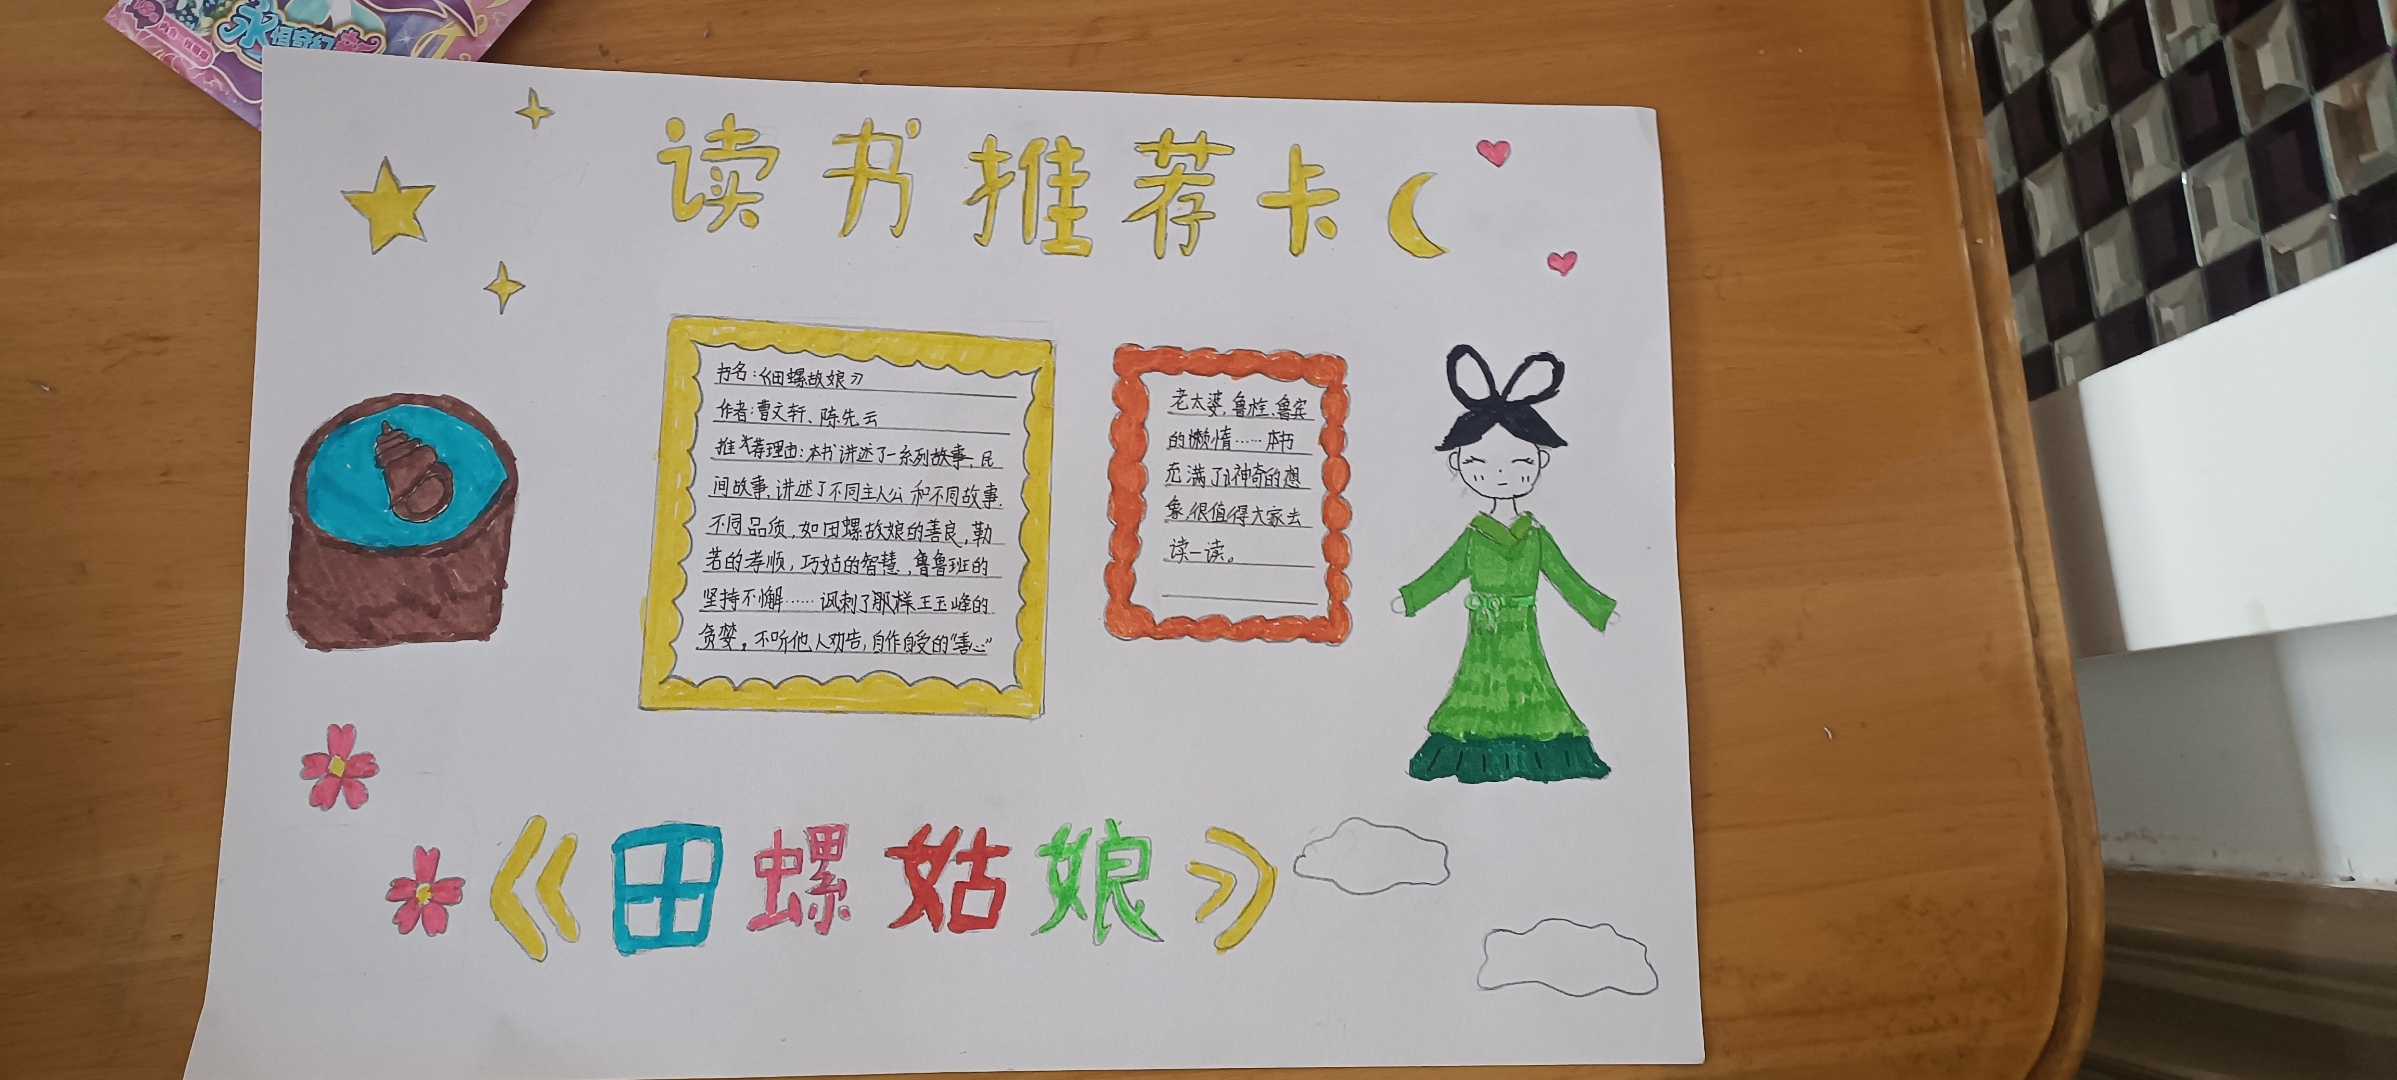 读书推荐卡
书名:《田螺故娘》
作者:曹文轩、陈先云
推荐理由:本书讲述了一系列故事,民
间故事,讲述了不同主人公和不同故事.
不同品质,如田螺故娘的善良,勒
若的孝顺,巧姑的智慧,鲁班的
坚持不懈……讽刺了那样王玉峰的
贪婪。不听他人劝告,自作自受的“善心”
老太婆,鲁栓、鲁宾
的懒惰……本书
充满了神奇的想
象,很值得大家去
读一读。
《田螺姑娘》